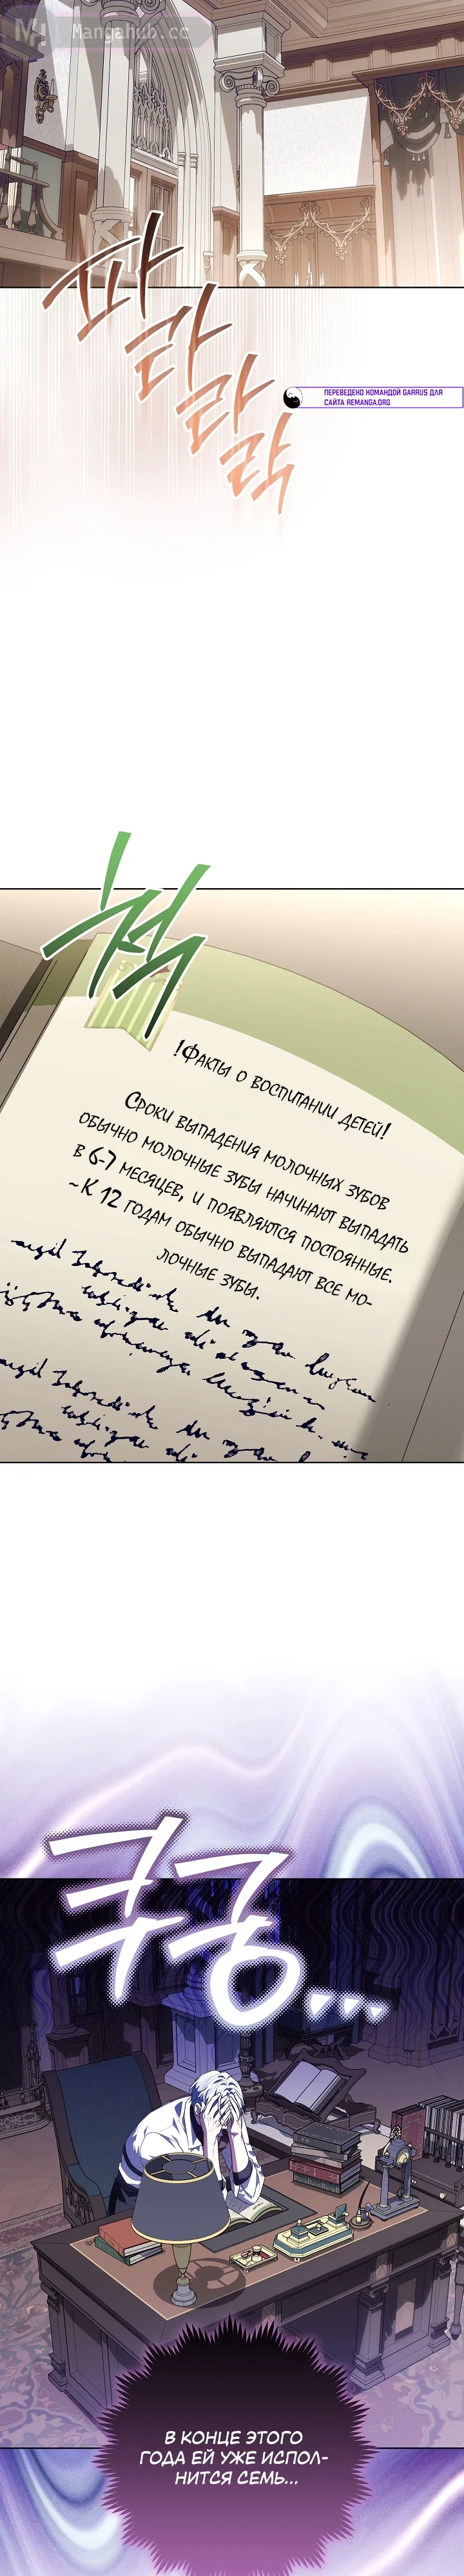 Mangahub.cc
파라라락
ПЕРЕВЕДЕНО КОМАНДОЙ GARRUS ДЛЯ
САЙТА REMANGA.ORG
척
!Факты о воспитании детей!
Сроки выпадения молочных зубов
обычно молочные зубы начинают выпадать
в 6-7 месяцев, и появляются постоянные.
~К 12 годам обычно выпадают все мо-
лочные зубы.
쿠궁...
В КОНЦЕ ЭТОГО
ГОДА ЕЙ УЖЕ ИСПОЛ-
НИТСЯ СЕМЬ...